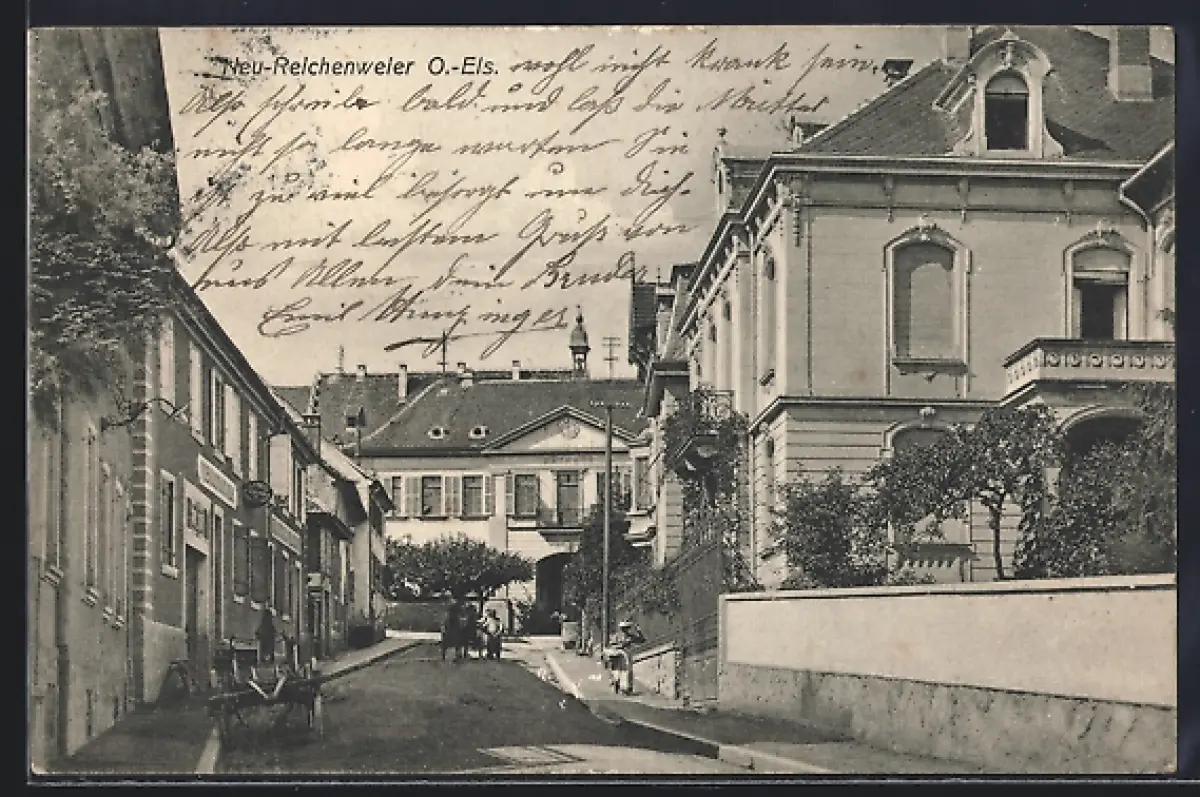 Neu-Reichenweier O.-Els. wohl nicht krank sein.
Also schreibe bald und laß die Mutter
nicht so lange warten Sie
ist zu viel besorgt um dich.
Also mit bestem Gruß von
uns Allen dein Bruder
Emil